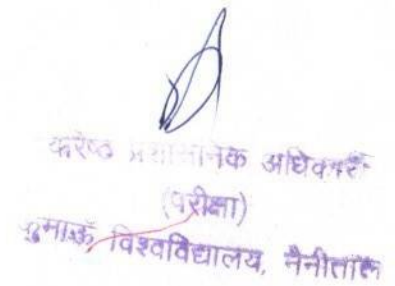 वरिष्ठ प्रशासनिक अधिकारी
(परीक्षा)
कुमाऊँ विश्वविद्यालय, नैनीताल